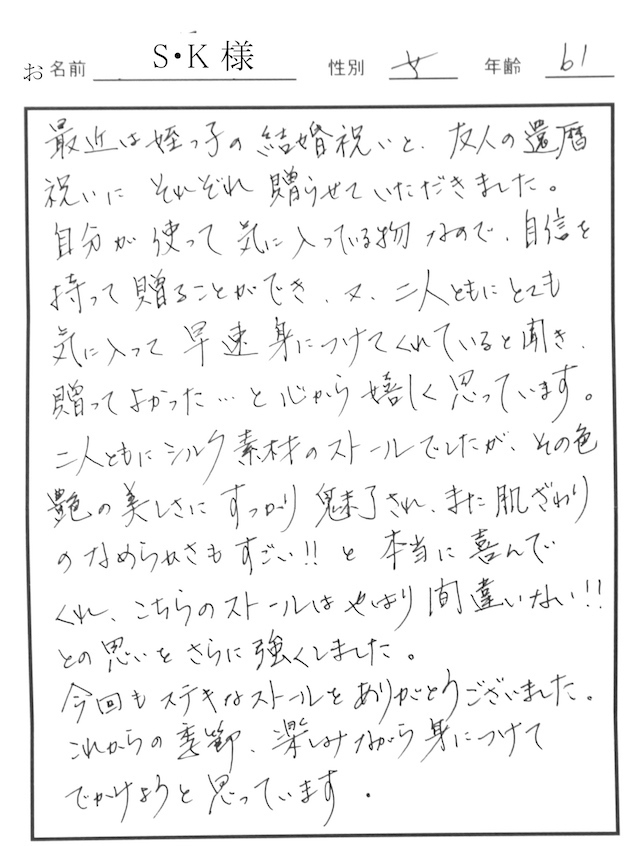 お名前 S・K 様 性別 女 年齢 61
最近は姪っ子の結婚祝いと、友人の還暦
祝いに それぞれ 贈らせていただきました。
自分が 使って 気に入っている物なので、自信を
持って 贈ることができ、又、二人ともにとても
気に入って 早速 身につけてくれていると聞き、
贈ってよかった…と心から 嬉しく 思っています。
二人ともにシルク素材のストールでしたが、その色
艶の美しさに すっかり 魅了され、また肌ざわり
のなめらかさも すごい!! と 本当に 喜んで
くれ、こちらのストールは やはり 間違いない!!
との思いを さらに 強くしました。
今回も ステキなストールを ありがとうございました。
これからの 季節、楽しみながら 身につけて
でかけようと 思っています.